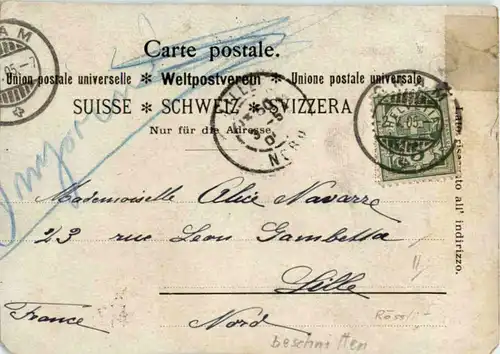 Carte postale.
Union postale universelle ✻ Weltpostverein ✻ Unione postale universale
SUISSE ✻ SCHWEIZ ✻ SVIZZERA
Nur für die Adresse.
Lato riservato all' indirizzo.
Mademoiselle Alice Navarre
23 rue Leon Gambetta
Lille
France Nord
Rössli
beschnitten
NORD